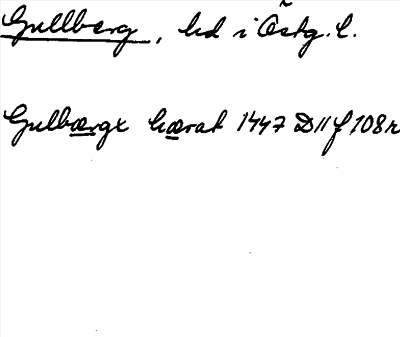 Gullberg, hd i Östg. l.
Gulbærgx hærat 1447 D11 f 108r